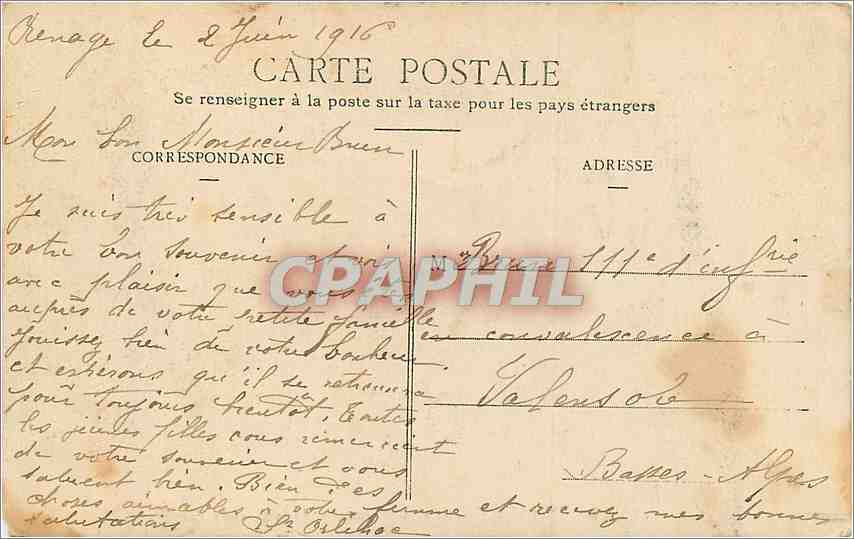 Renage le 2 Juin 1916
CARTE POSTALE
Se renseigner à la poste sur la taxe pour les pays étrangers
Mon bon Monsieur Brun
CORRESPONDANCE
Je suis très sensible à
votre bon souvenir et vois
avec plaisir que vous êtes
auprès de votre petite famille
Jouissez bien de votre bonheur
et espérons qu'il se retrouvera
pour toujours bientôt. Toutes
les jeunes filles vous remercient
de votre souvenir et vous
saluent bien. Bien des
choses aimables à votre femme et recevez mes bonnes
salutations Sr
ADRESSE
Mr Brun 111e d'infrie
en convalescence à
Valensole
Basses-Alpes
CPAPHIL